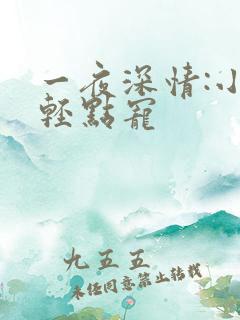 一夜深情:小
輕點寵
九五五
未经同意禁止转载